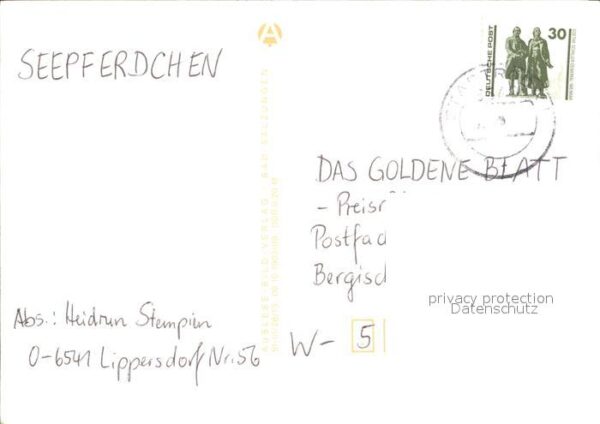 SEEPFERDCHEN
30
DEUTSCHE POST
DAS GOLDENE BLATT
- Preisr
Postfac
Bergisc
privacy protection
Datenschutz
W- 5
Abs.: Heidrun Stempien
O-6541 Lippersdorf Nr. 56
AUSLESE-BILD-VERLAG · BAD SALZUNGEN